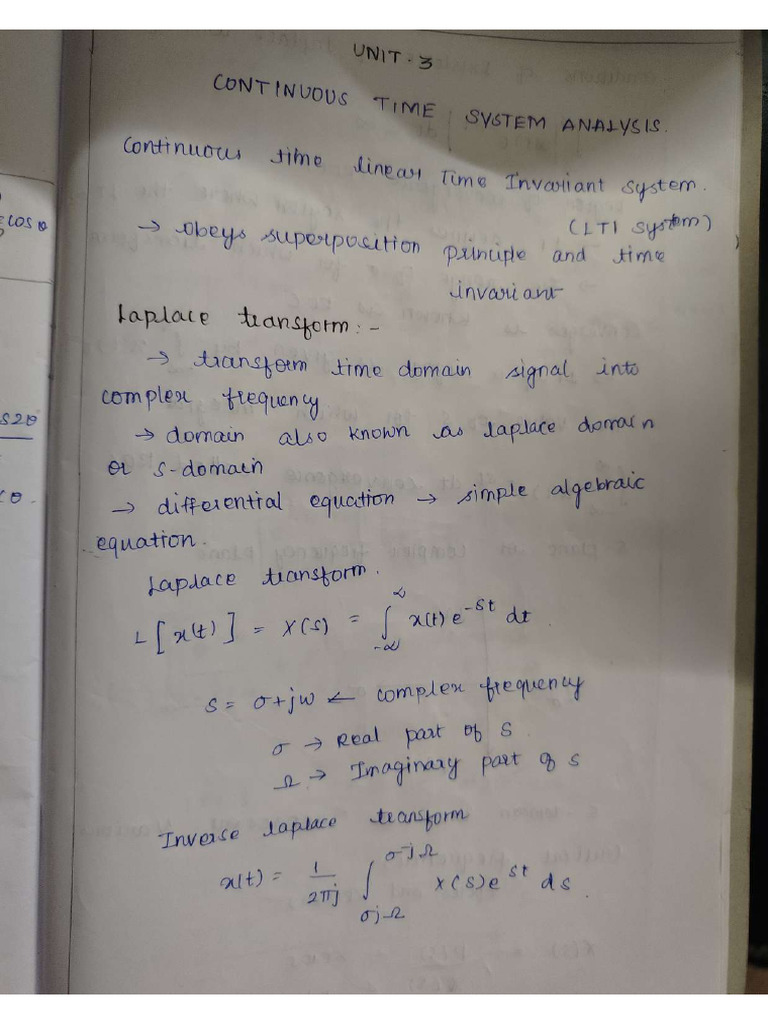 UNIT-3
CONTINUOUS TIME SYSTEM ANALYSIS.
Continuous time linear Time Invariant system.
(LTI system)
→ obeys superposition principle and time
invariant
Laplace transform:-
→ transform time domain signal into
complex frequency
→ domain also known as laplace domain
or s-domain
→ differential equation → simple algebraic
equation.
Laplace transform.
L[x(t)] = X(s) = ∫_{-∞}^{∞} x(t) e^{-st} dt.
s = σ+jω ← complex frequency
σ → Real part of s.
Ω → Imaginary part of s
Inverse laplace transform
x(t) = 1/2πj ∫_{σj-Ω}^{σ-jΩ} X(s) e^{st} ds.
cos θ
s2θ